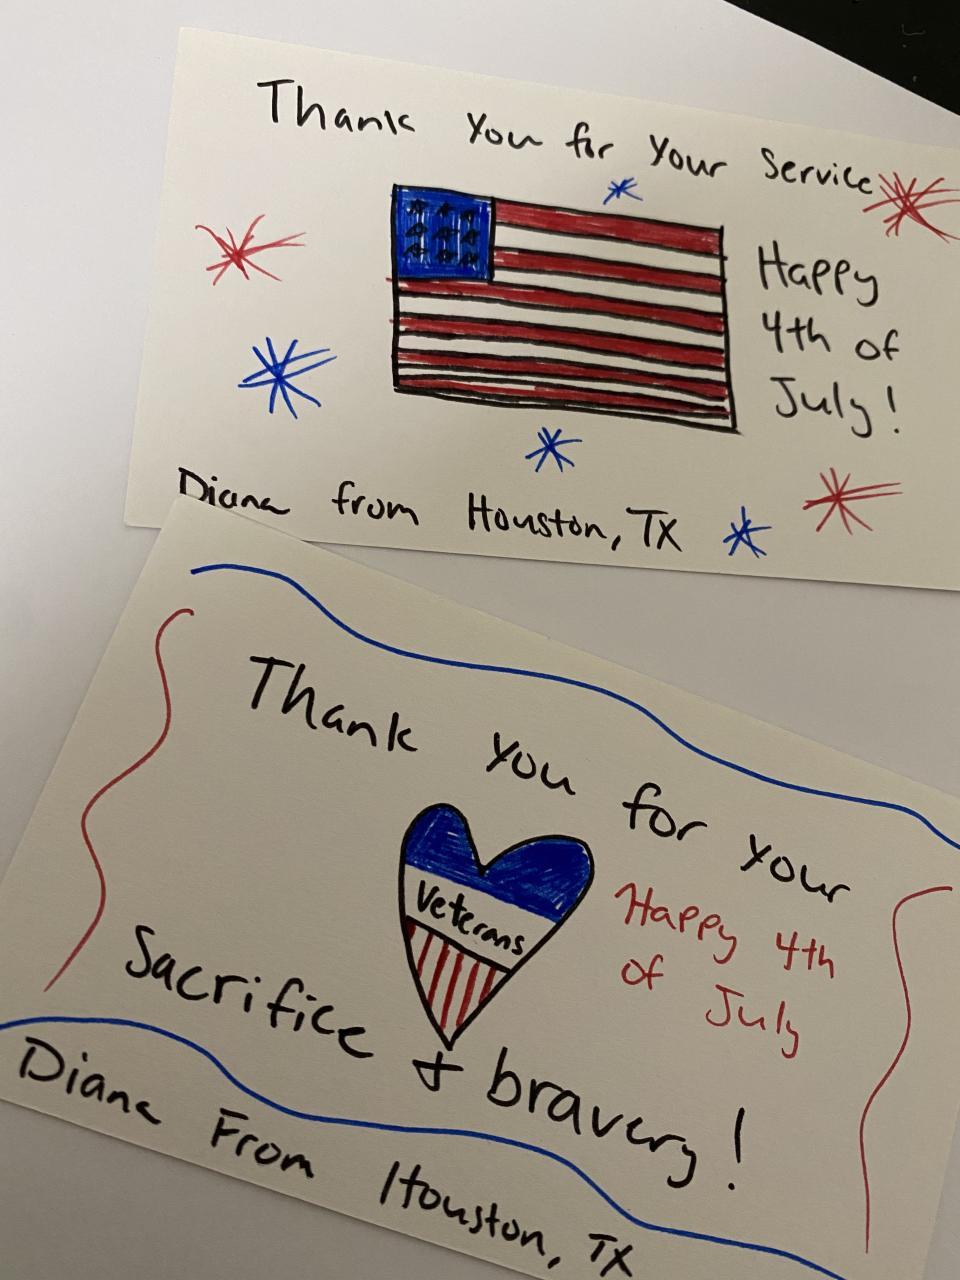 Thank You for Your Service
Happy
4th of
July!
Diana from Houston, TX
Thank you for your
Veterans
Happy 4th
of July
Sacrifice & bravery!
Diana From Houston, TX